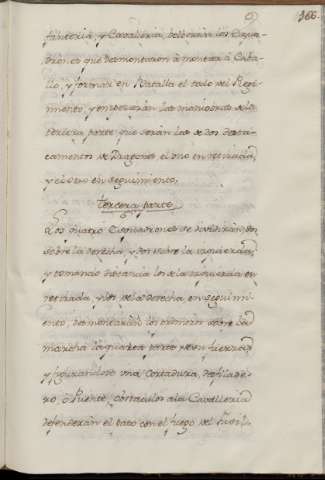 166.
fanteria, y Cavalleria, bolberán los Esqua-
drones que desmontaron à montar à Caba-
llo, y formar en Batalla el resto del Regi-
miento, y empezarán las maniobras de la
tercera parte que serán las de dos desta-
camentos de Dragones el uno en retirada,
y el otro en seguimiento.
Tercera parte
Los quatro Esquadrones se dividirán, dos
sobre la derecha y dos sobre la izquierda,
y tomando distancia los de la izquierda en
retirada, y los de la derecha en seguimi-
ento, desmontarán los primeros sobre la
marcha la quarta parte de su fuerza,
y figurandose una Cortadura, desfilade-
ro, ò Puente, cortados a la Cavalleria
defenderán el paso con el fuego del fusil,